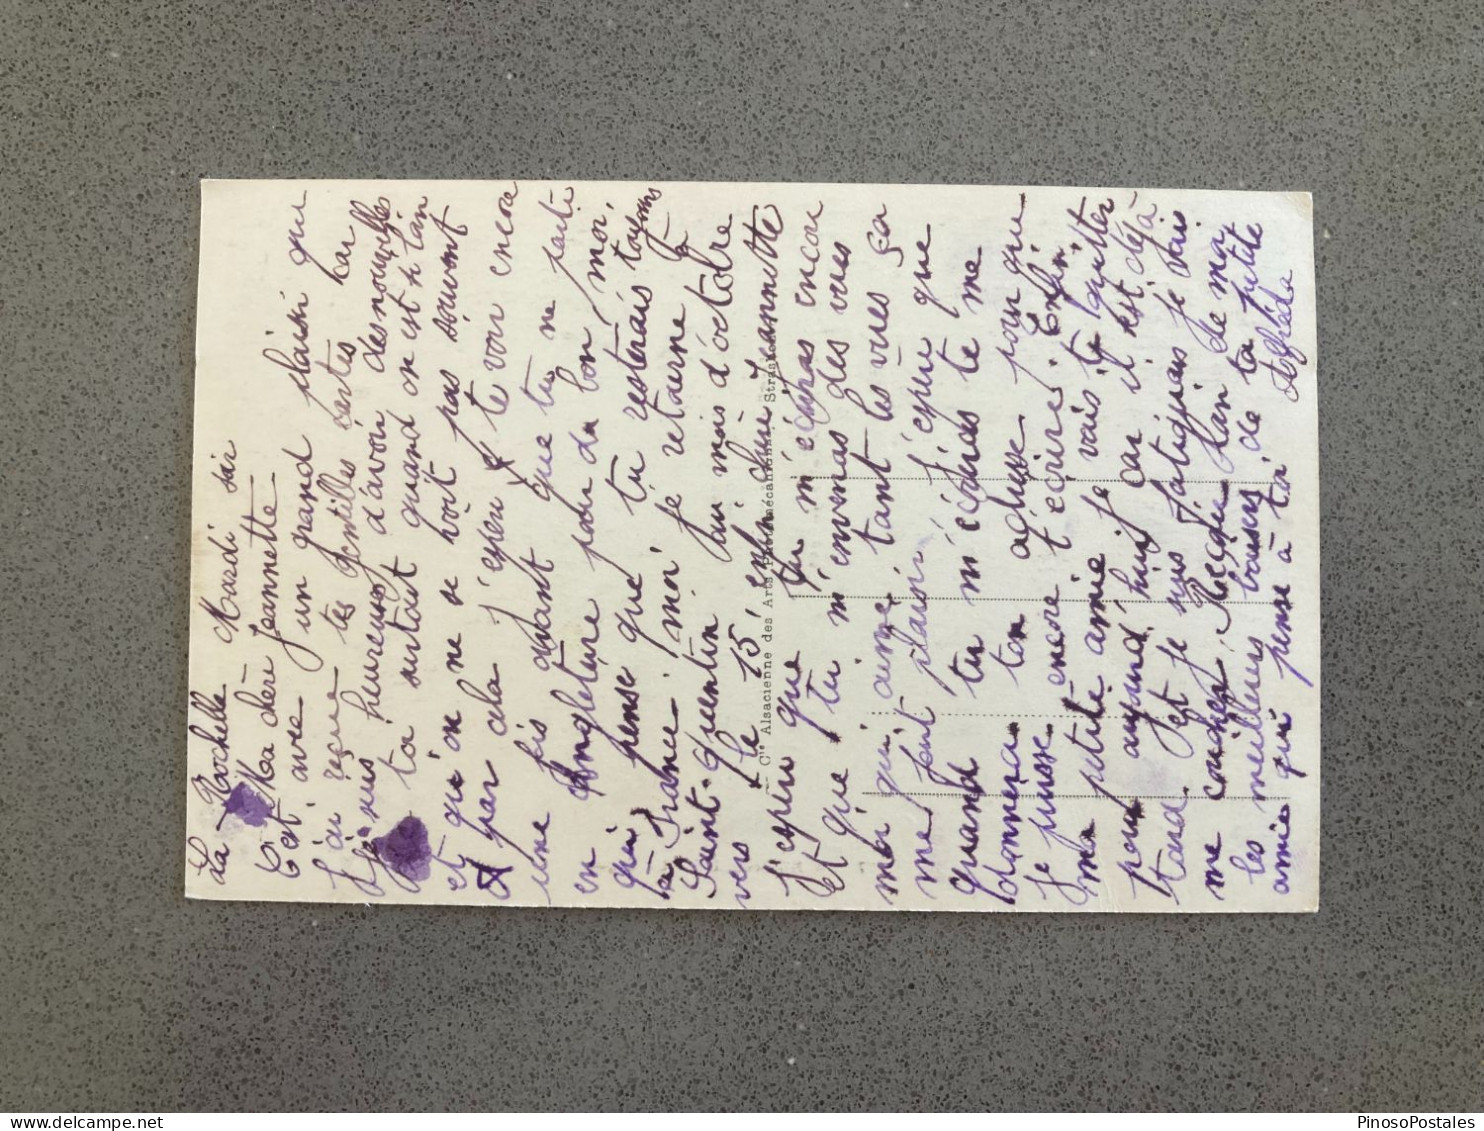 La Rochelle Mardi soir
Ma chère Jeannette
C'est avec un grand plaisir que
J'ai reçue tes gentilles cartes car
Je suis heureuse d'avoir des nouvelles
de ta surtout quand on est si loin
et qu'on ne se voit pas souvent
par cela J'espère te voir encore
une fois avant que tu ne parte
en Angleterre pour de bon, moi,
qui pense que tu resterais toujours
en France. moi je retourne à
Saint-quentin au mois d'octobre
vers le 15, enfin chère Jeannette
J'espère que tu m'écriras encore
Et que tu m'enverras des vues
moi qui aime tant les vues ça
me font plaisir. J'espère que
quand tu m'écriras tu me
donnera ton adresse pour que
Je puisse encore t'écrire. Enfin,
ma petite amie je vais te quitter
pour aujourd'hui car il est déjà
tard et je suis fatiguée je vais
me coucher, Reçois bien de moi
les meilleurs baisers de ta petite
amie qui pense à toi
Cie Alsacienne des Arts Photomécaniques
PinosoPostales